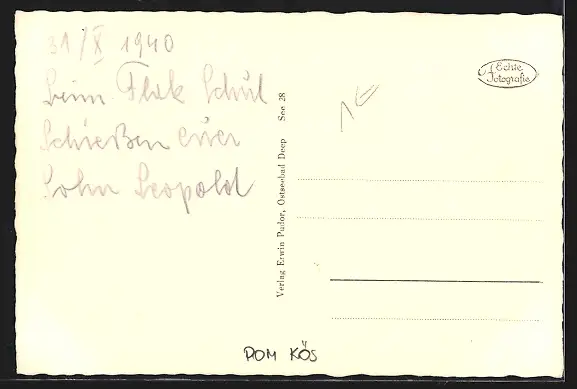 31/X 1940
beim Flak Schul
Schießen euer
Sohn Leopold
Verlag Erwin Pudor, Ostseebad Deep See 28
Echte
Fotografie
1€
POM KÖS